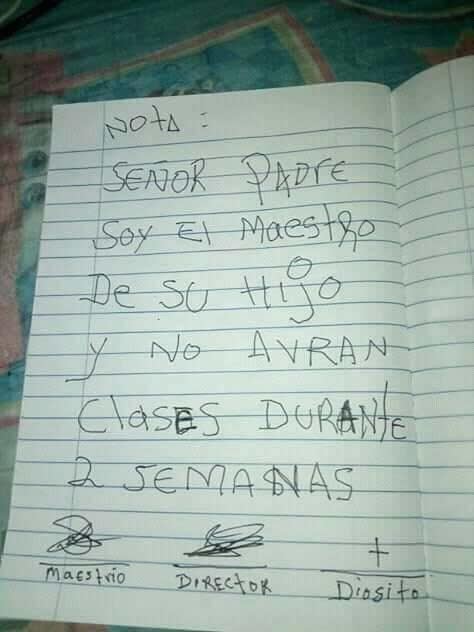 NOTA:
SEÑOR PADrE
SOY El MaestRo
De SU HiJO
y NO AVRAN
ClasES DURANTE
2 SEMANAS
Maestrio DIRECTOR Diosito